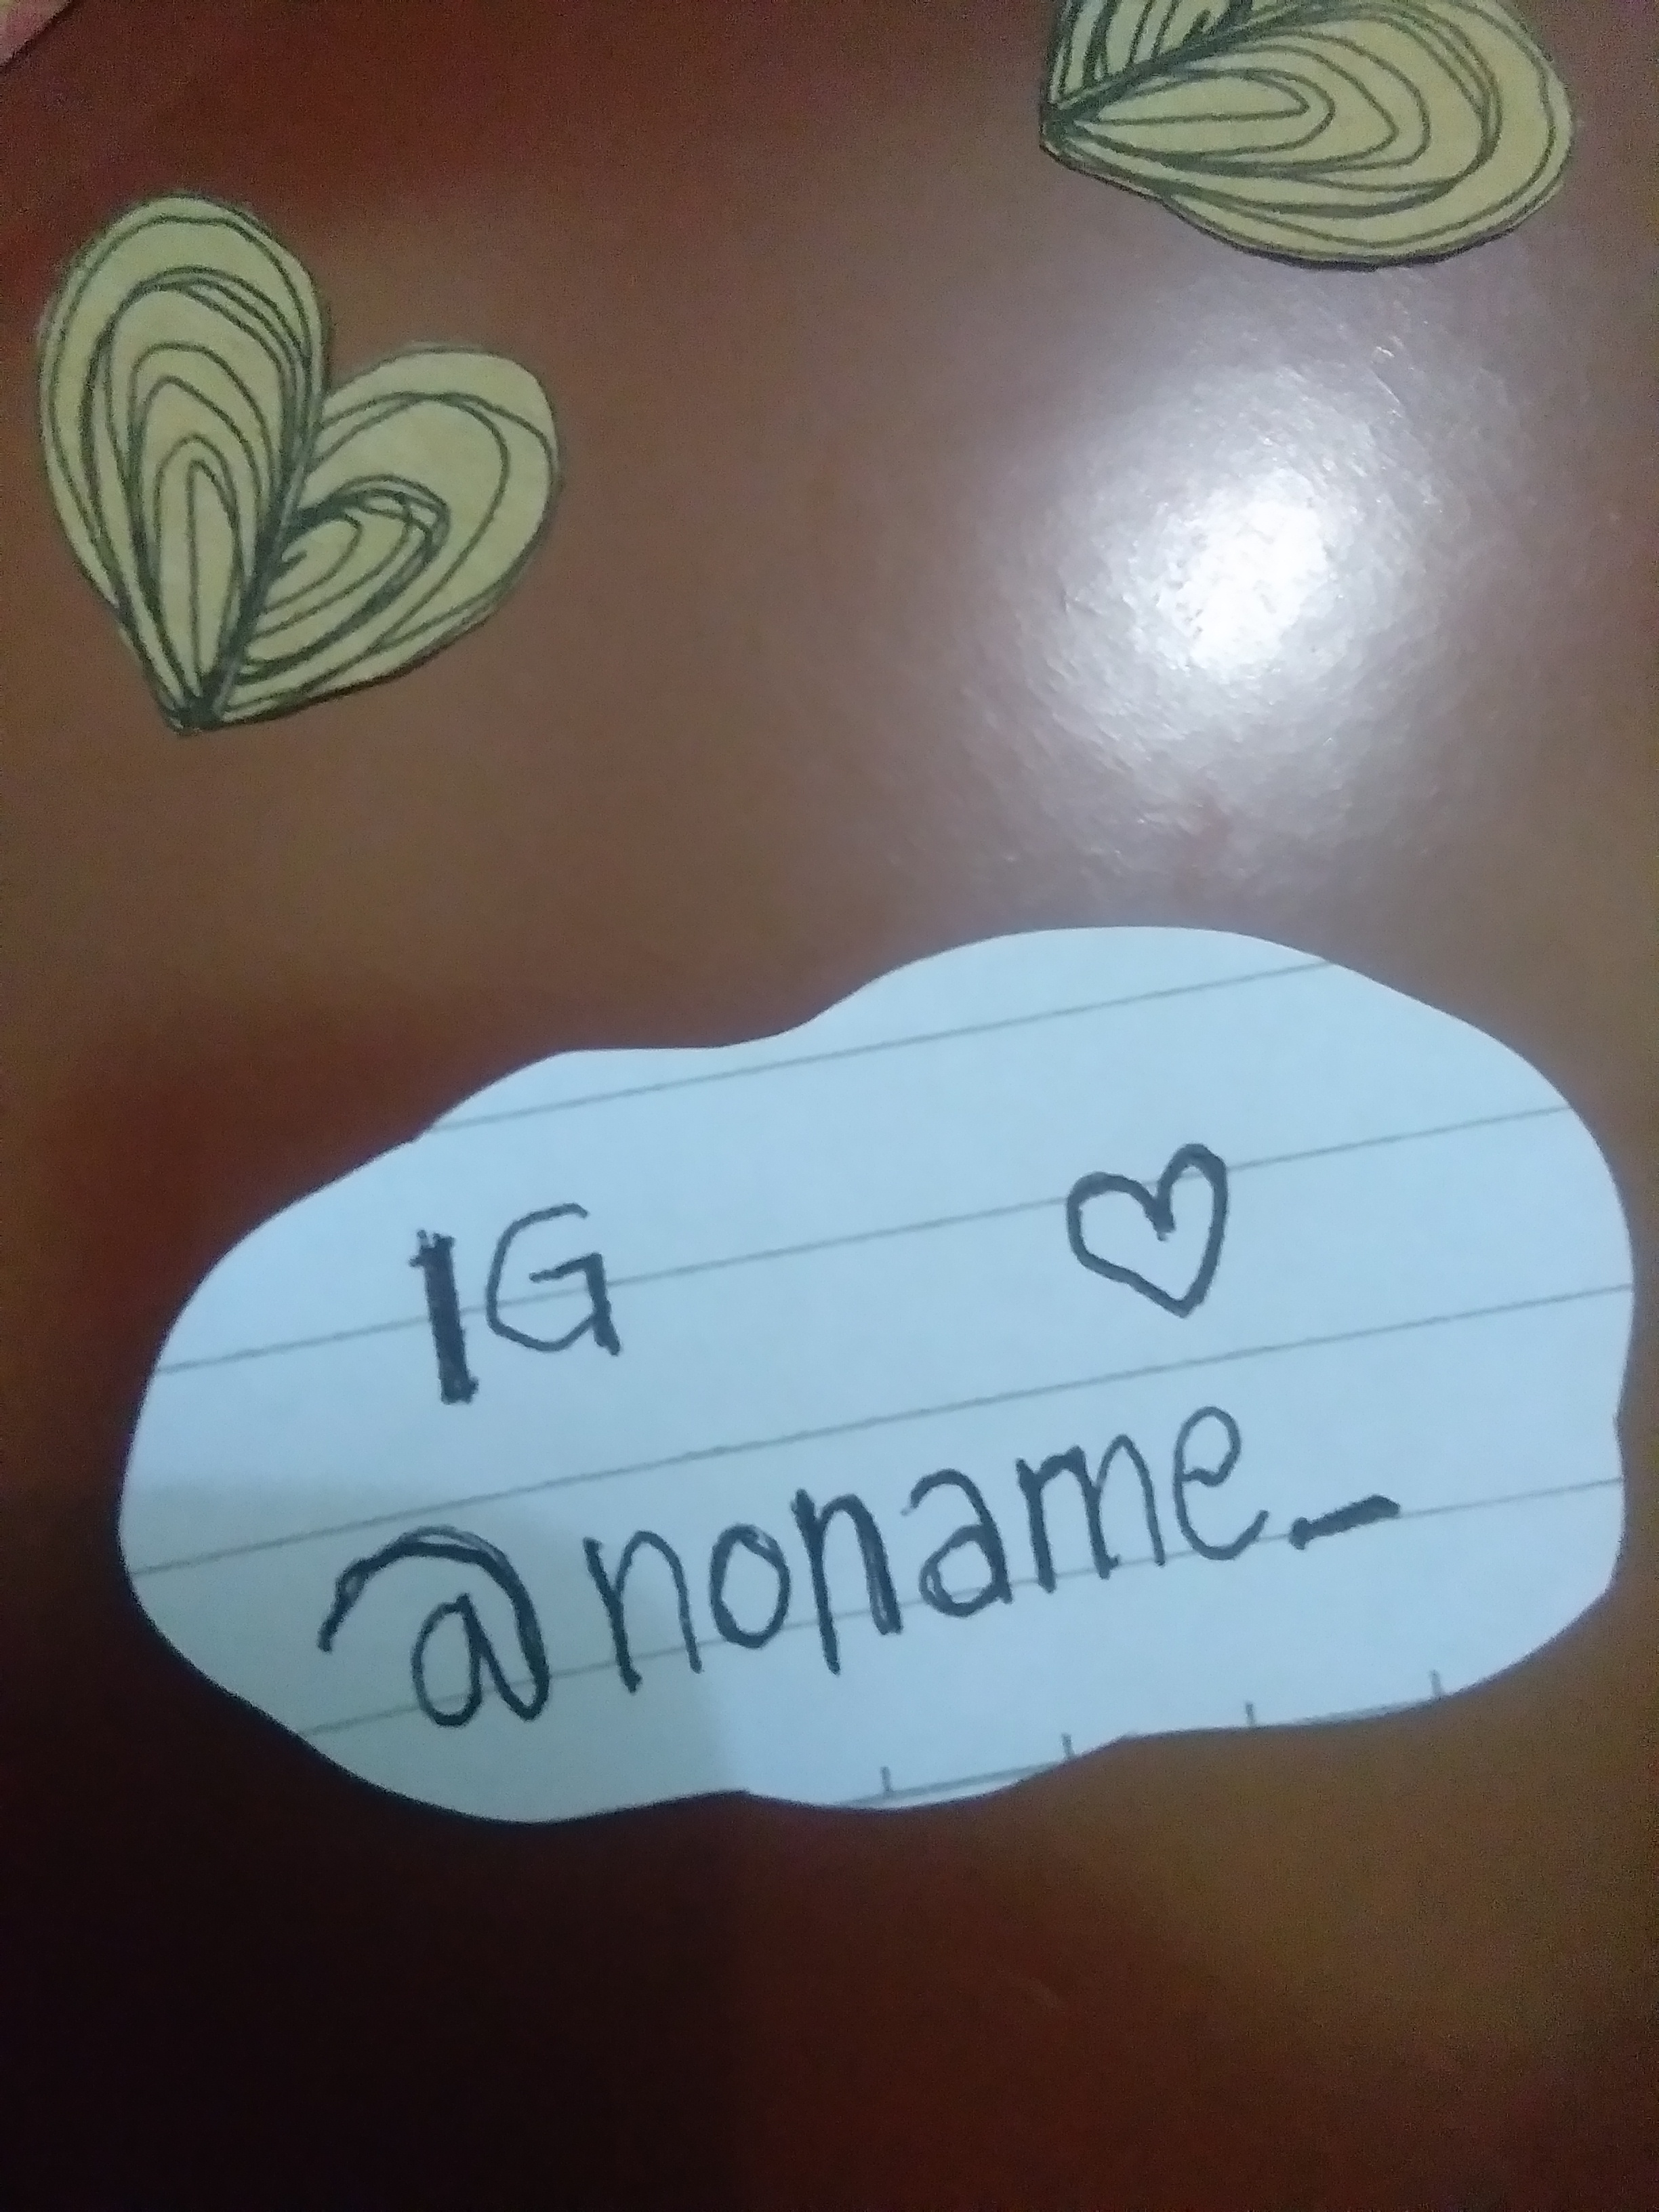 IG ♡
@noname_